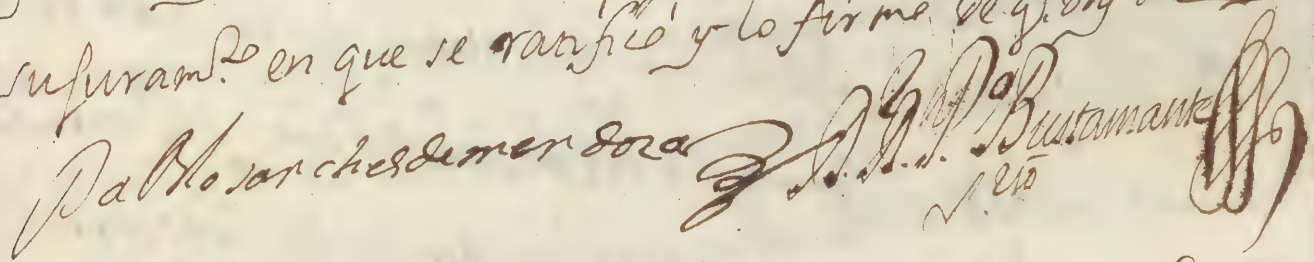 su Juram.to en que se ratificó y lo firmé de q. doy
Pablo sanches de mendoza Bustamante